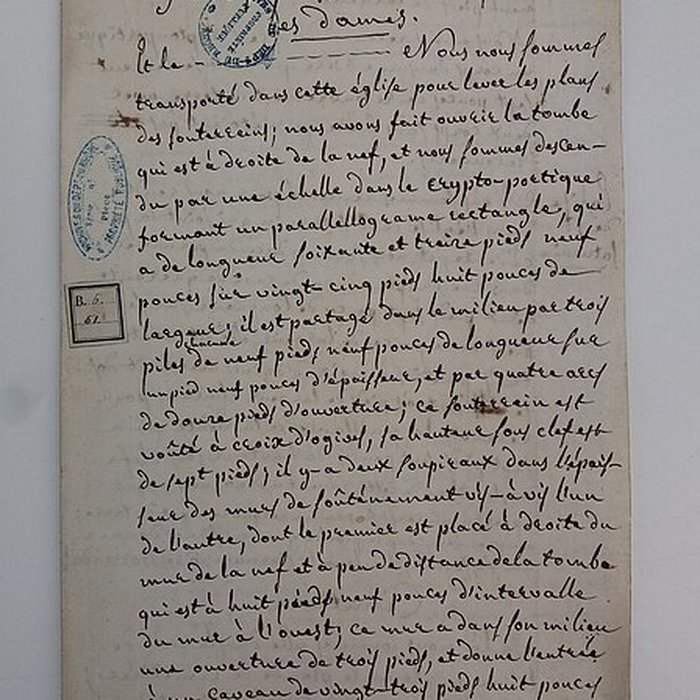 des dames.
Et le - - - - - - - - Nous nous sommes
transporté dans cette église pour lever les plans
des souterreins; nous avons fait ouvrir la tombe
qui est à droite de la nef, et nous sommes descen-
du par une échelle dans le crypto-portique
formant un parallellograme rectangle, qui
a de longueur soixante et treize pieds neuf
pouces sur vingt-cinq pieds huit pouces de
largeur; il est partagé dans le milieu par trois
piles de neuf pieds neuf pouces de longueur sur
un pied neuf pouces d'épaisseur, et par quatre arcs
de douze pieds d'ouverture; ce souterrein est
voûté à croix d'ogives, sa hauteur sous clef est
de sept pieds; il y-a deux soupiraux dans l'épais-
seur des murs de soûtènement vis-à vis l'un
de l'autre, dont le premier est placé à droite du
mur de la nef et à peu de distance de la tombe
qui est à huit pieds neuf pouces d'intervalle
du mur à l'ouest; ce mur a dans son milieu
une ouverture de trois pieds, et donne l'entrée
à un caveau de vingt-trois pieds huit pouces
B. 6.
61.
PROPRIÉTÉ PUBLIQUE